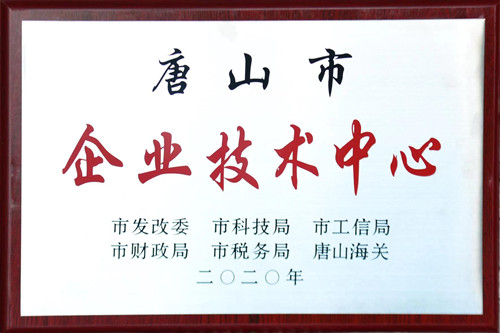 唐山市
企业技术中心
市发改委 市科技局 市工信局
市财政局 市税务局 唐山海关
二〇二〇年